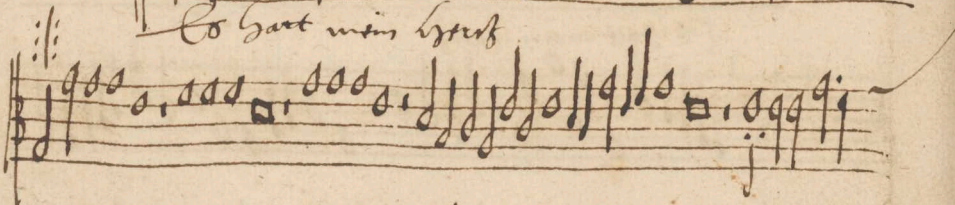 Es hatt mein Hertz